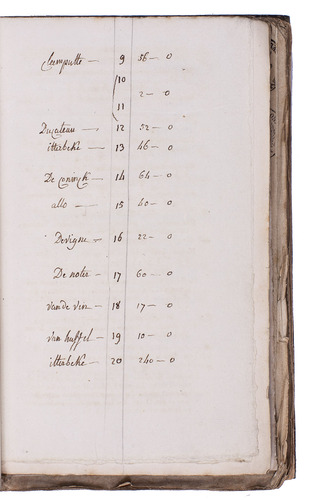 Cleempulte — 9 56 — 0
10
2 — 0
11
Ducateau — 12 52 — 0
itterbeke — 13 46 — 0
De 14 64 — 0
allo — 15 40 — 0
Devigne — 16 22 — 0
De noter — 17 60 — 0
van de ven — 18 17 — 0
van huffel — 19 10 — 0
itterbeke — 20 240 — 0